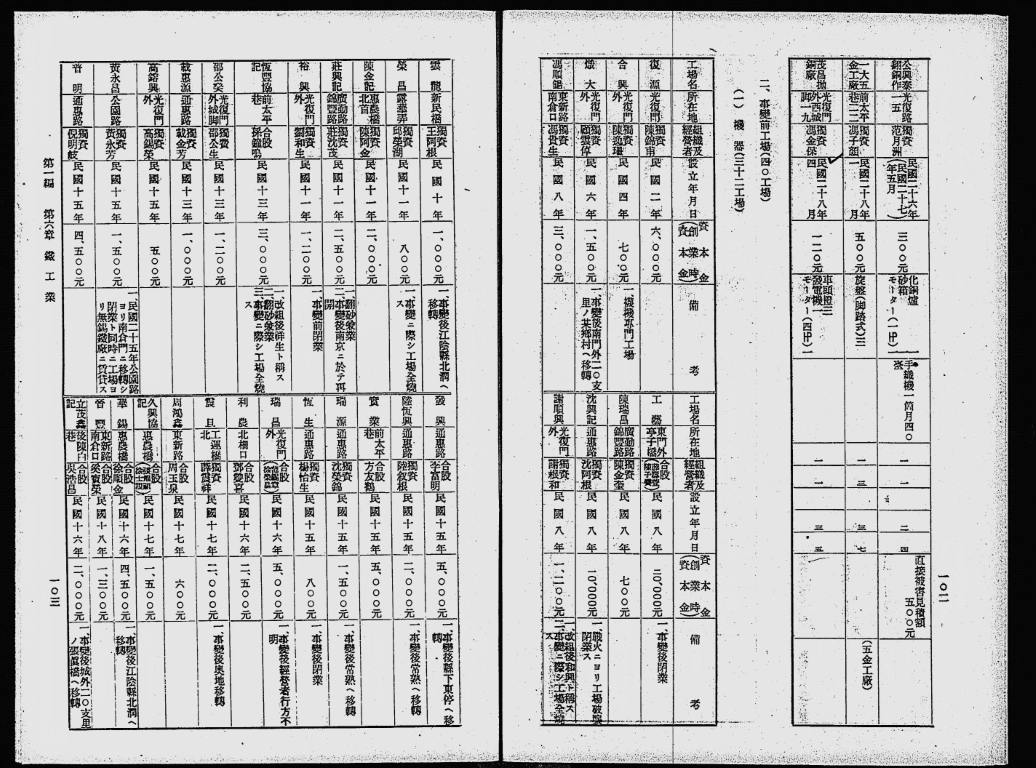 公興泰
翻銅作
光復路
一五
獨資
范月洲
民國二十六年
(民國二十七
年五月)
三〇〇元
化銅爐
砂箱
モーター(一HP)
一
一
手鐵機一箇月四〇
二
四
直接被害見積額
五〇〇元
一大五
金工廠
前太平
巷二二
獨資
馮子頤
民國二十八年
一月
五〇〇元
旋盤(脚踏式)三
一
三
三
七
(五金工廠)
茂昌拋
銅廠
光復門
外西城
脚一九
獨資
馮金俊
民國二十八年
四月
一二〇元
車頭燈三
發電機一
モーター(四HP)一
二
一
三
五
一〇二
二、事變前工場(四〇工場)
(一) 機器(三十二工場)
工場名
所在地
組織及
經營者
設立年月日
資本金
(創業時)
備考
復源
光復門
獨資
陳錦甫
民國二年
六、〇〇〇元
合興
光復門
外
獨資
陳逸珊
民國四年
七〇〇元
一、襪機專門工場
燉大
光復門
外
獨資
顧雲停
民國六年
一、五〇〇元
一、事變後南門外二〇支
里ノ某鄉村ヘ移轉
馮順錩
東新路
南倉口
獨資
馮貴生
民國八年
三、〇〇〇元
工場名
所在地
組織及
經營者
設立年月日
資本金
(創業時)
備考
工藝
東門外
亭子橋
合股
民國八年
二〇、〇〇〇元
一、事變後閉業
陳瑞昌
廣勤路
錦豐路
獨資
陳金奎
民國八年
七〇〇元
沈興記
通惠路
獨資
沈阿根
民國八年
一〇、〇〇〇元
一、戰火ニヨリ工場破壞
閉業ス
謝順興
光復門
外
獨資
謝根和
民國八年
一、二〇〇元
一、改組後和興ト稱ス
二、事變ニ際シ工場全燒
ス
雲龍
新民橋
獨資
王阿根
民國十年
一、〇〇〇元
一、事變後江陰縣北澗ヘ
移轉
榮昌
嚴家弄
獨資
邱榮湖
民國十一年
八〇元
一、事變ニ際シ工場全燒
ス
陳金記
惠農橋
北首
獨資
陳阿金
民國十一年
二、〇〇〇元
莊興記
廣勤路
錦豐路
獨資
莊沈茂
民國十一年
二、五〇〇元
一、翻砂兼業
二、事變後南京ニ於テ再
開
裕興
光復門
外
獨資
鄒和生
民國十一年
一、二〇〇元
一、事變前閉業
恆豐協
記
前太平
巷
合股
孫鑑鶴
民國十三年
三、〇〇〇元
一、改組後祥生ト稱ス
二、翻砂兼業
三、事變ニ際シ工場全燒
邵公癸
光復門
外城脚
獨資
邵公生
民國十三年
一、二〇〇元
裁惠源
通惠路
獨資
裁金芳
民國十三年
一、〇〇〇元
高鎔興
光復門
外
獨資
高錫榮
民國十五年
五〇元
黃永昌
公園路
獨資
黃永芳
民國十五年
一、五〇〇元
一、民國二十五年公園路
ヨリ南倉門ニ移轉シ
閉業ト同時ニ工場ヨ
リ無錫鐵廠ニ賃貸ス
晋明
通惠路
獨資
倪明岐
民國十五年
四、五〇〇元
發興
通惠路
合股
李富明
民國十五年
五、〇〇〇元
一、事變後縣下東停ヘ移
轉
陸恆興
通惠路
獨資
陸叙根
民國十五年
二、〇〇〇元
一、事變後常熟ヘ移轉
實業
前太平
巷
合股
方友鶴
民國十五年
五、〇〇〇元
瑞源
通惠路
獨資
沈榮錦
民國十五年
一、五〇〇元
一、事變後常熟ヘ移轉
恆生
通惠路
獨資
楊怡生
民國十五年
八〇〇元
一、事變後閉業
瑞昌
光復門
外
合股
民國十六年
五、〇〇〇元
一、事變後經營者行方不
明
利農
北橋口
合股
鄧燮喜
民國十六年
二、五〇〇元
震旦
工運橋
北
獨資
薛震祥
民國十七年
二、〇〇〇元
一、事變後奧地移轉
周鴻鑫
東新路
獨資
周玉泉
民國十七年
六〇〇元
久興協
記
惠農橋
合股
民國十七年
一、五〇〇元
華錫
惠農橋
合股
徐順金
民國十六年
四、五〇〇元
一、事變後江陰縣北澗ヘ
移轉
晉豐
東新路
南倉口
合股
榮寶榮
民國十八年
一、三〇〇元
立茂鑫
記
後陳白
巷
合股
吳浩昌
民國十六年
二、〇〇〇元
一、事變後城外二〇支里
ノ張眞橋ヘ移轉
第一編 第六章 鐵工業
一〇三